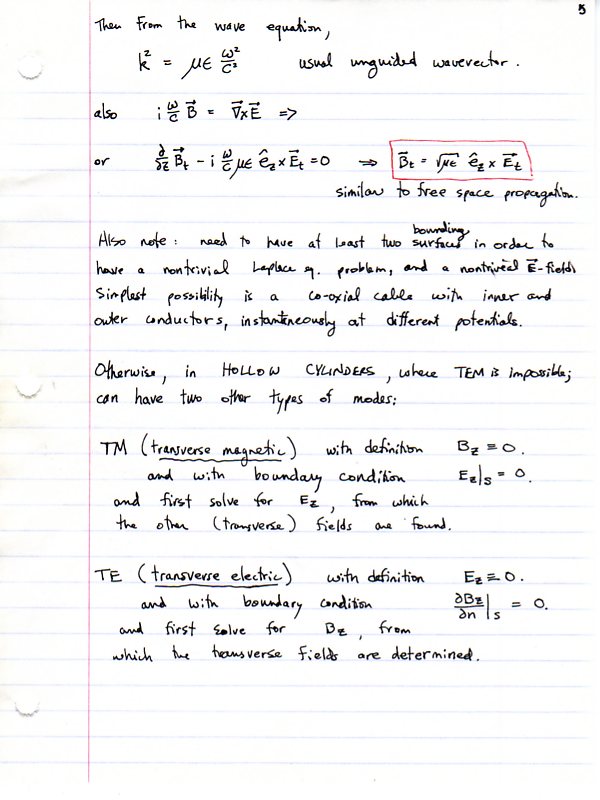 5
Then from the wave equation,
k² = με ω²/c² usual unguided wavevector.
also i ω/c B⃗ = ∇⃗×E⃗ =>
or ∂/∂z B⃗t - i ω/c με êz × E⃗t = 0 => B⃗t = √με êz × E⃗t
similar to free space propagation.
Also note: need to have at least two bounding surfaces in order to
have a nontrivial Laplace eq. problem, and a nontrivial E⃗-field.
Simplest possibility is a co-axial cable with inner and
outer conductors, instantaneously at different potentials.
Otherwise, in HOLLOW CYLINDERS, where TEM is impossible;
can have two other types of modes:
TM (transverse magnetic) with definition Bz ≡ 0.
and with boundary condition Ez|s = 0.
and first solve for Ez, from which
the other (transverse) fields are found.
TE (transverse electric) with definition Ez ≡ 0.
and with boundary condition ∂Bz/∂n|s = 0.
and first solve for Bz, from
which the transverse fields are determined.